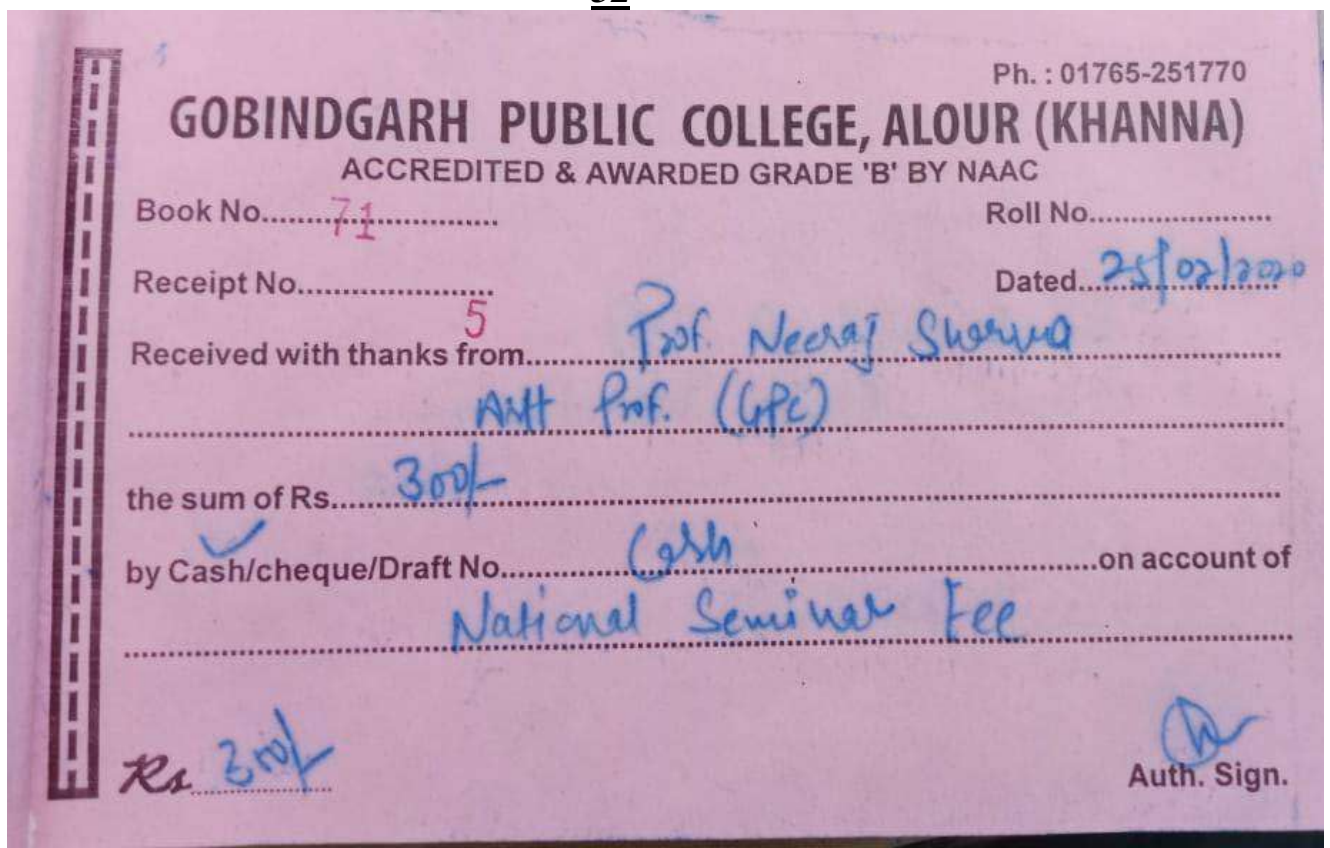 Ph. : 01765-251770
GOBINDGARH PUBLIC COLLEGE, ALOUR (KHANNA)
ACCREDITED & AWARDED GRADE 'B' BY NAAC
Book No.....71..... Roll No.....
Receipt No..... 5 Dated...25/02/2020
Received with thanks from.....Prof. Neeraj Sharma
Astt Prof. (GPC)
the sum of Rs.....300/-
by Cash/cheque/Draft No.....Cash.....on account of
National Seminar Fee
Rs 300/-
Auth. Sign.